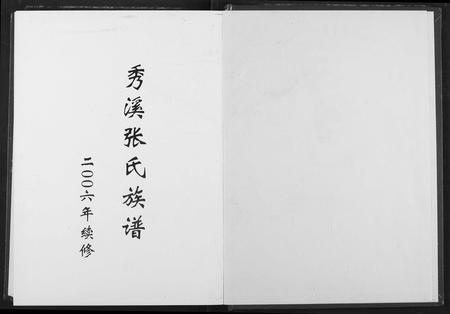 秀溪张氏族谱
二〇〇六年续修